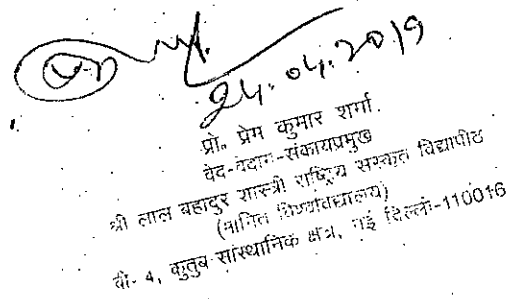 24.04.2019
प्रो. प्रेम कुमार शर्मा
वेद-वेदांग-संकायप्रमुख
श्री लाल बहादुर शास्त्री राष्ट्रिय संस्कृत विद्यापीठ
(मानित विश्वविद्यालय)
बी- 4, कुतुब सांस्थानिक क्षेत्र, नई दिल्ली-110016